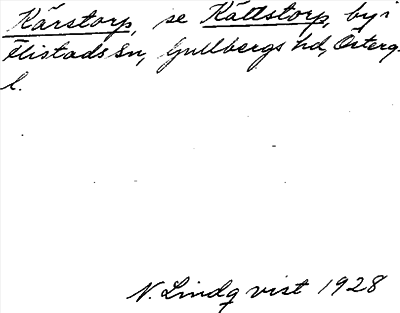 Kärstorp, se Kättstorp, by i
Flistads sn, Gullbergs hd, Österg.
l.
N. Lindqvist 1928